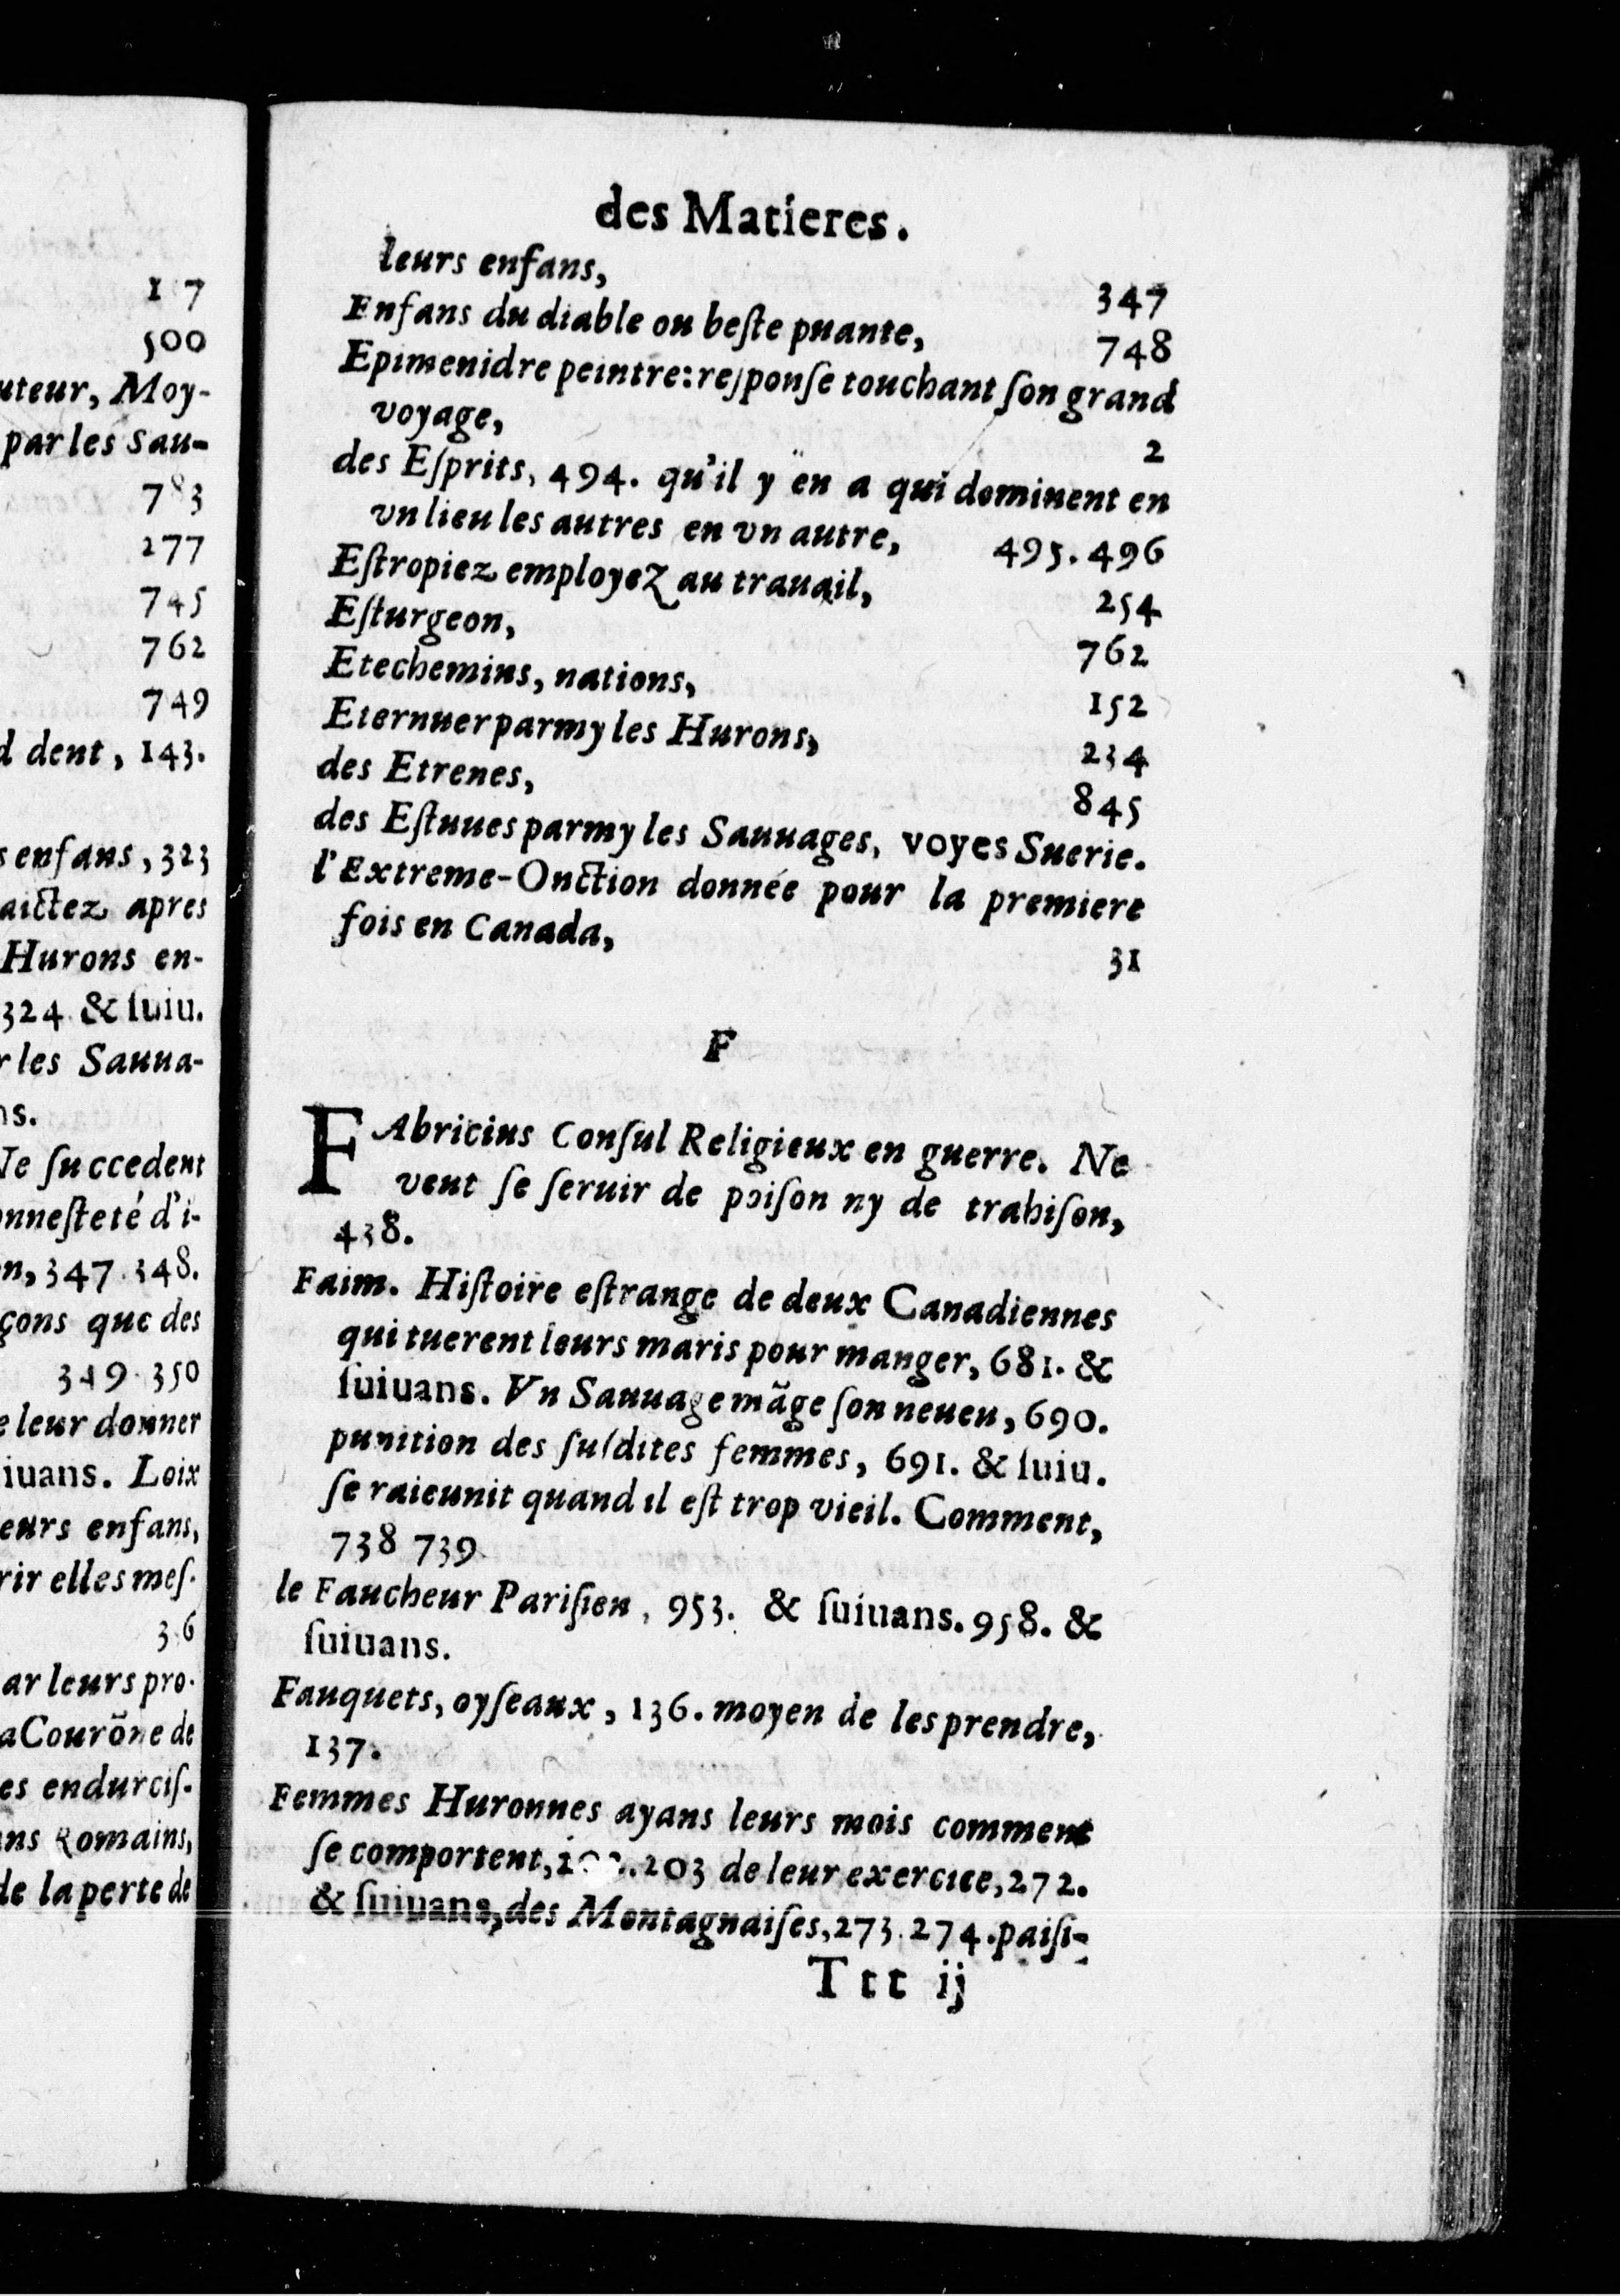 1 7
500
uteur, Moy-
par les Sau-
783
277
745
762
749
d dent, 143.
s enfans, 323
aictez apres
Hurons en-
324. & ſuiu.
r les Sauua-
ns.
Ne ſuccedent
onneſteté d'i-
n, 347. 348.
çons que des
349. 350
e leur donner
iuans. Loix
eurs enfans,
rir elles meſ-
3 6
ar leurs pro-
a Courõne de
es endurciſ-
ns Romains,
de la perte de
des Matieres.
leurs enfans, 347
Enfans du diable ou beſte puante, 748
Epimenidre peintre: reſponſe touchant ſon grand
voyage, 2
des Eſprits, 494. qu'il y en a qui dominent en
vn lieu les autres en vn autre, 495. 496
Eſtropiez employez au trauail, 254
Eſturgeon, 762
Etechemins, nations, 152
Eternuer parmy les Hurons, 234
des Etrenes, 845
des Eſtuues parmy les Sauuages, voyes Suerie.
l'Extreme-Onction donnée pour la premiere
fois en Canada, 31
F
FAbricius Conſul Religieux en guerre. Ne
veut ſe ſeruir de poiſon ny de trahiſon,
438.
Faim. Hiſtoire eſtrange de deux Canadiennes
qui tuerent leurs maris pour manger, 681. &
ſuiuans. Vn Sauuage mãge ſon neueu, 690.
punition des ſuſdites femmes, 691. & ſuiu.
ſe raieunit quand il eſt trop vieil. Comment,
738 739
le Faucheur Pariſien, 953. & ſuiuans. 958. &
ſuiuans.
Fauquets, oyſeaux, 136. moyen de les prendre,
137.
Femmes Huronnes ayans leurs mois comment
ſe comportent, 203 de leur exercice, 272.
& ſuiuans, des Montagnaiſes, 273. 274. paiſi-
Ttt ij